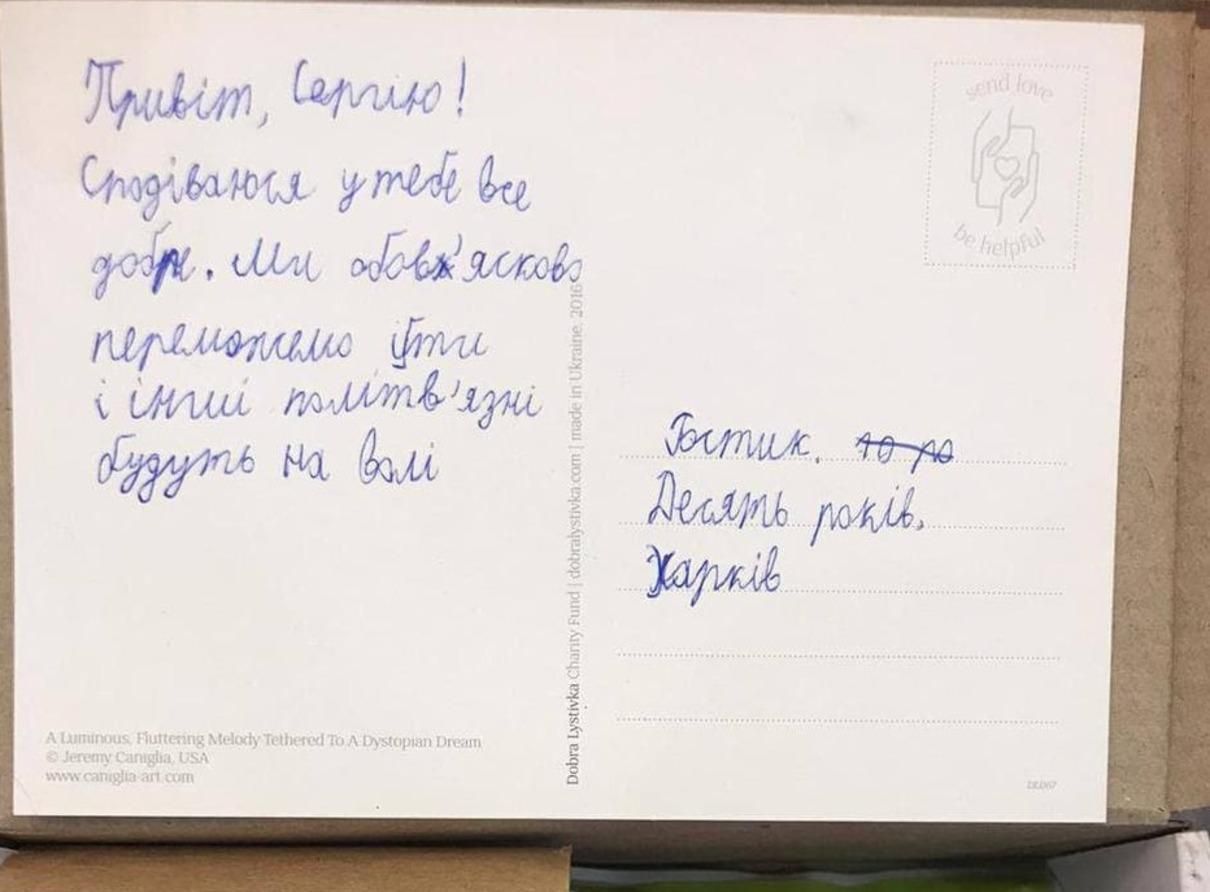 Привіт, Сергію!
Сподіваюся у тебе все
добре. Ми обовʼясково
переможемо і ти
і інші політвʼязні
будуть на волі
send love
be helpful
Dobra Lystivka Charity Fund | dobralystivka.com | made in Ukraine, 2016
Гостик.
Десять років.
Харків
A Luminous, Fluttering Melody Tethered To A Dystopian Dream
© Jeremy Caniglia, USA
www.caniglia-art.com